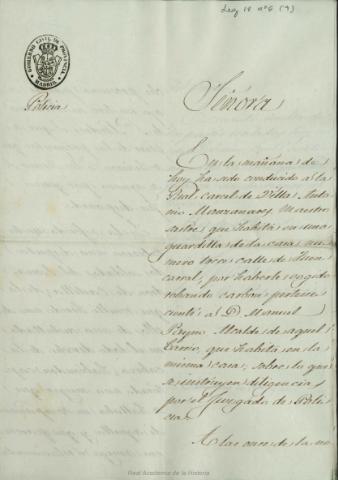 Leg 18 nº 6 (9)
GOBIERNO CIVIL DE PROVINCIA
MADRID
Policia
Señora
En la mañana de
hoy ha sido conducido a la
Real carcel de Villa Anto
nio Manzanares, Maestro
sastre que habita en una
guardilla de la casa nu
mero trece calle de Fuen
carral, por haberle cogido
robando carbon pertene
ciente a D. Manuel
Alcalde de aquel
barrio, que habita en la
misma casa, sobre lo que
se instruyen diligencias
por el Juzgado de Poli
cia.
A las once de la no
Real Academia de la Historia